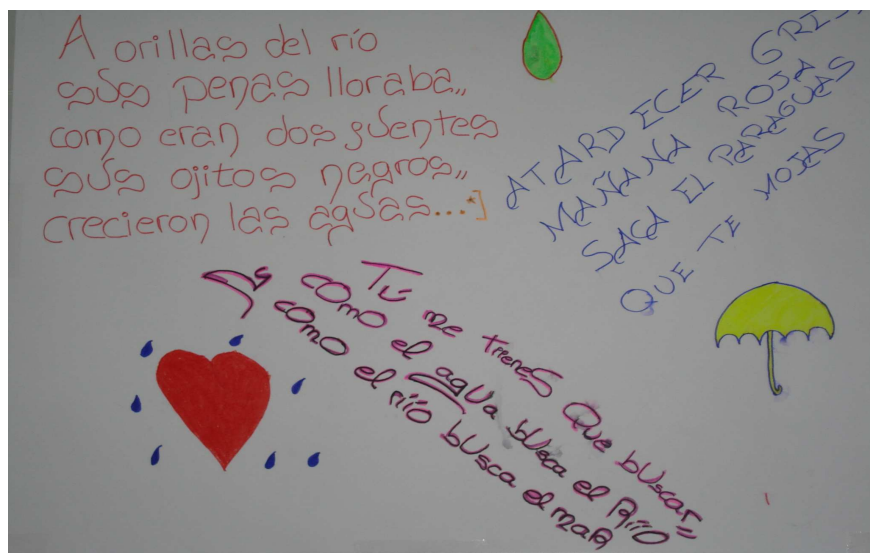 A orillas del río
sus penas lloraba,,
como eran dos guentes
sus ojitos negros,,
crecieron las aguas...*]
ATARDECER GRIS
MAÑANA ROJA
SACA EL PARAGUAS
QUE TE MOJAS
Tú me tienes que buscar=
como el agua busca el Riío
como el riío busca el maR